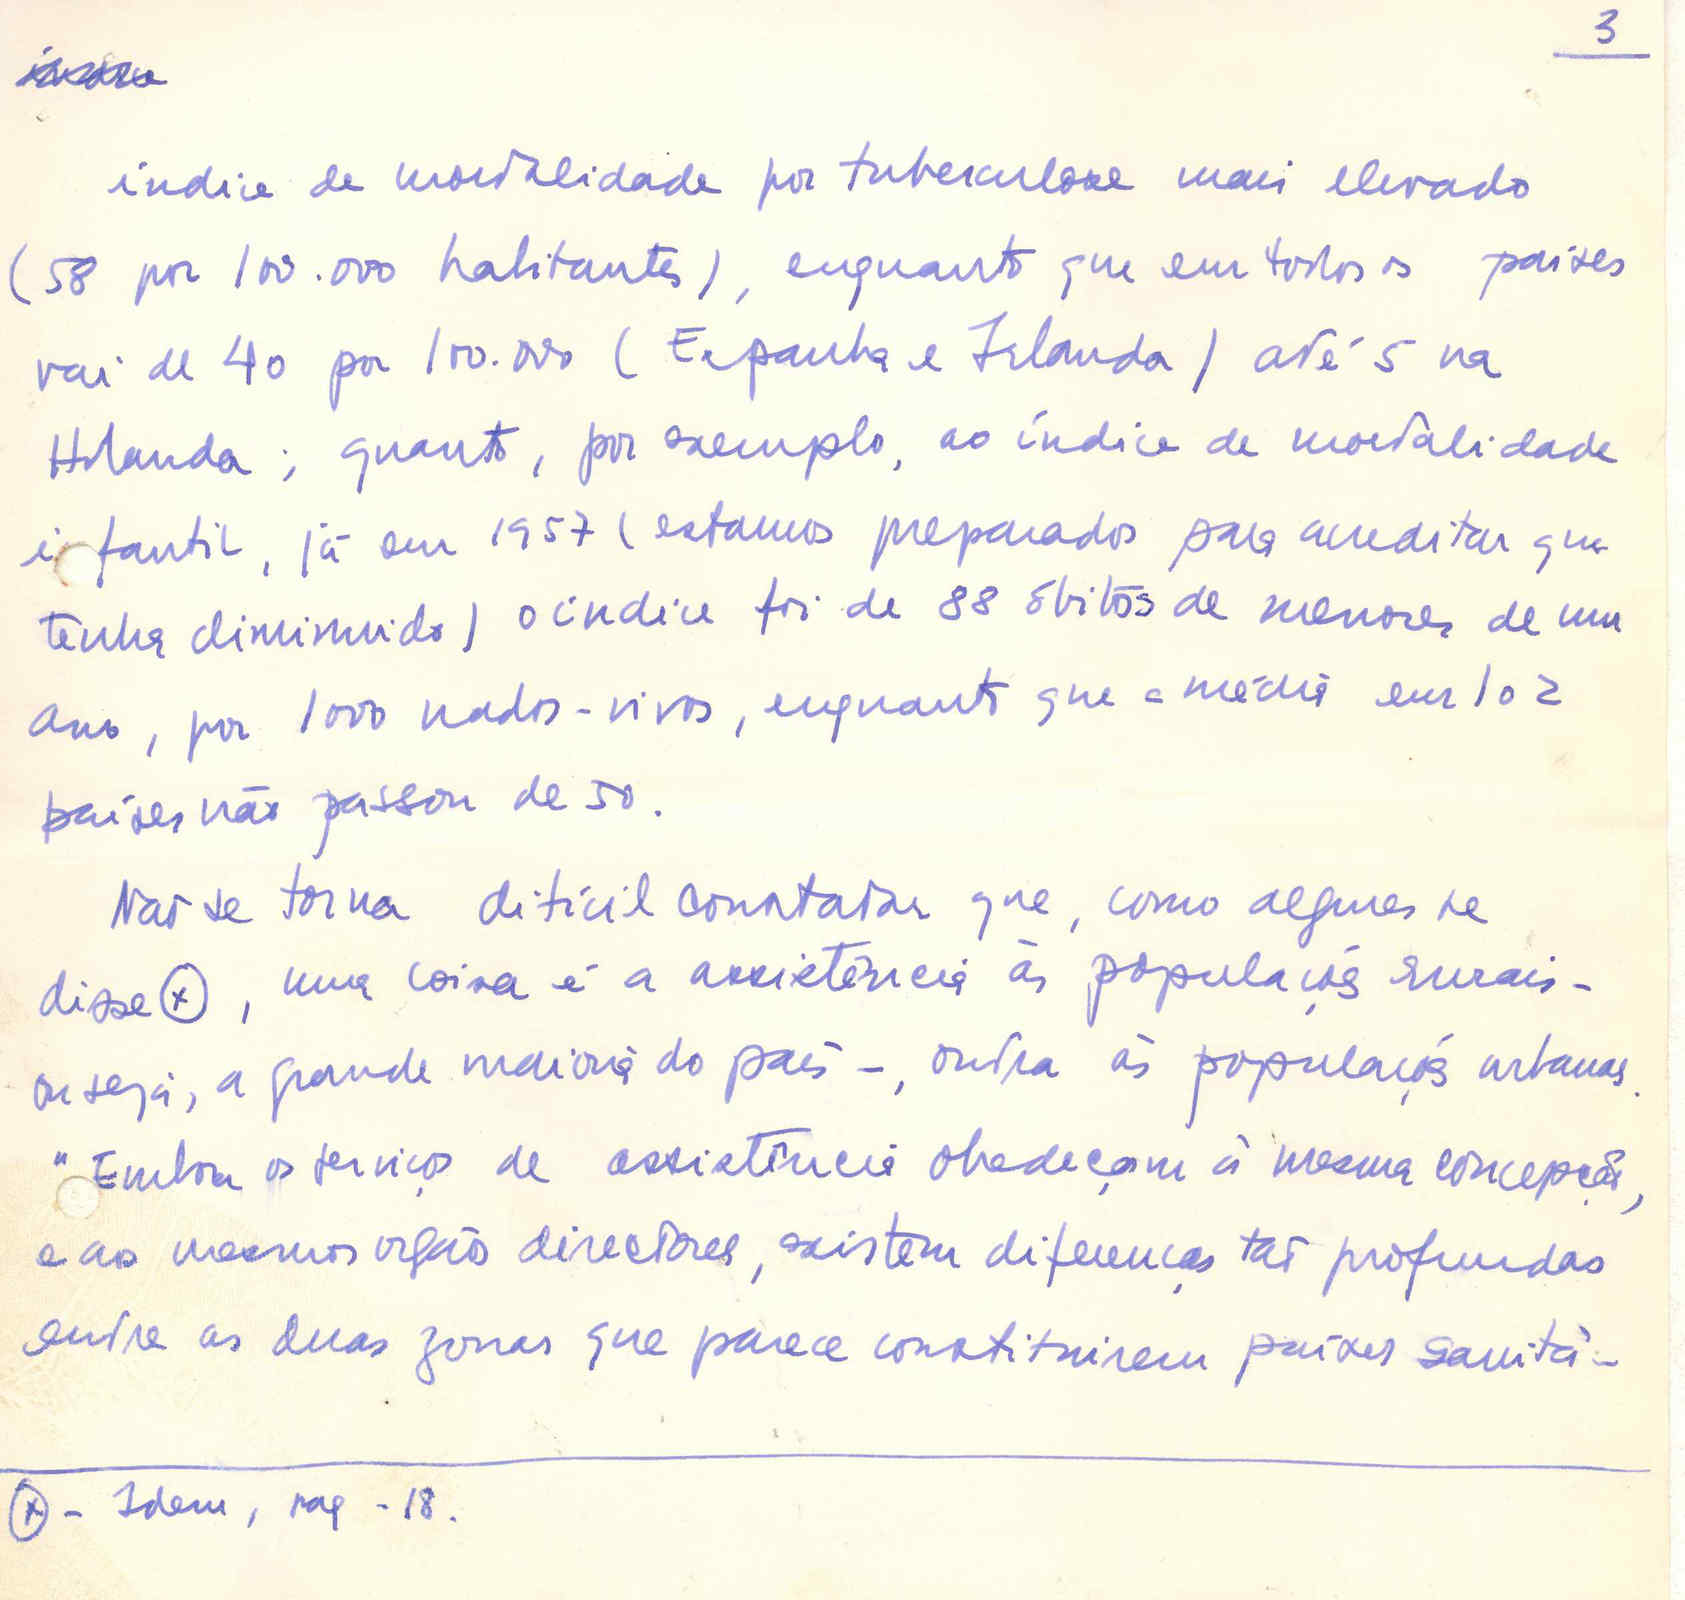 3
índice de mortalidade por tuberculose mais elevado
(58 por 100.000 habitantes), enquanto que em todos os países
vai de 40 por 100.000 (Espanha e Irlanda) até 5 na
Holanda; quanto, por exemplo, ao índice de mortalidade
infantil, já em 1957 (estamos preparados para acreditar que
tenha diminuido) o índice foi de 88 óbitos de menores de um
ano, por 1000 nados-vivos, enquanto que a média em 102
países não passou de 50.
Não se torna difícil constatar que, como algures se
disse (x), uma coisa é a assistência às populações rurais -
ou seja, a grande maioria do país -, outra às populações urbanas.
"Embora os serviços de assistência obedeçam à mesma concepção,
e aos mesmos orgãos directores, existem diferenças tão profundas
entre as duas zonas que parece constituirem países sanitá-
(x) - Idem, pag - 18.